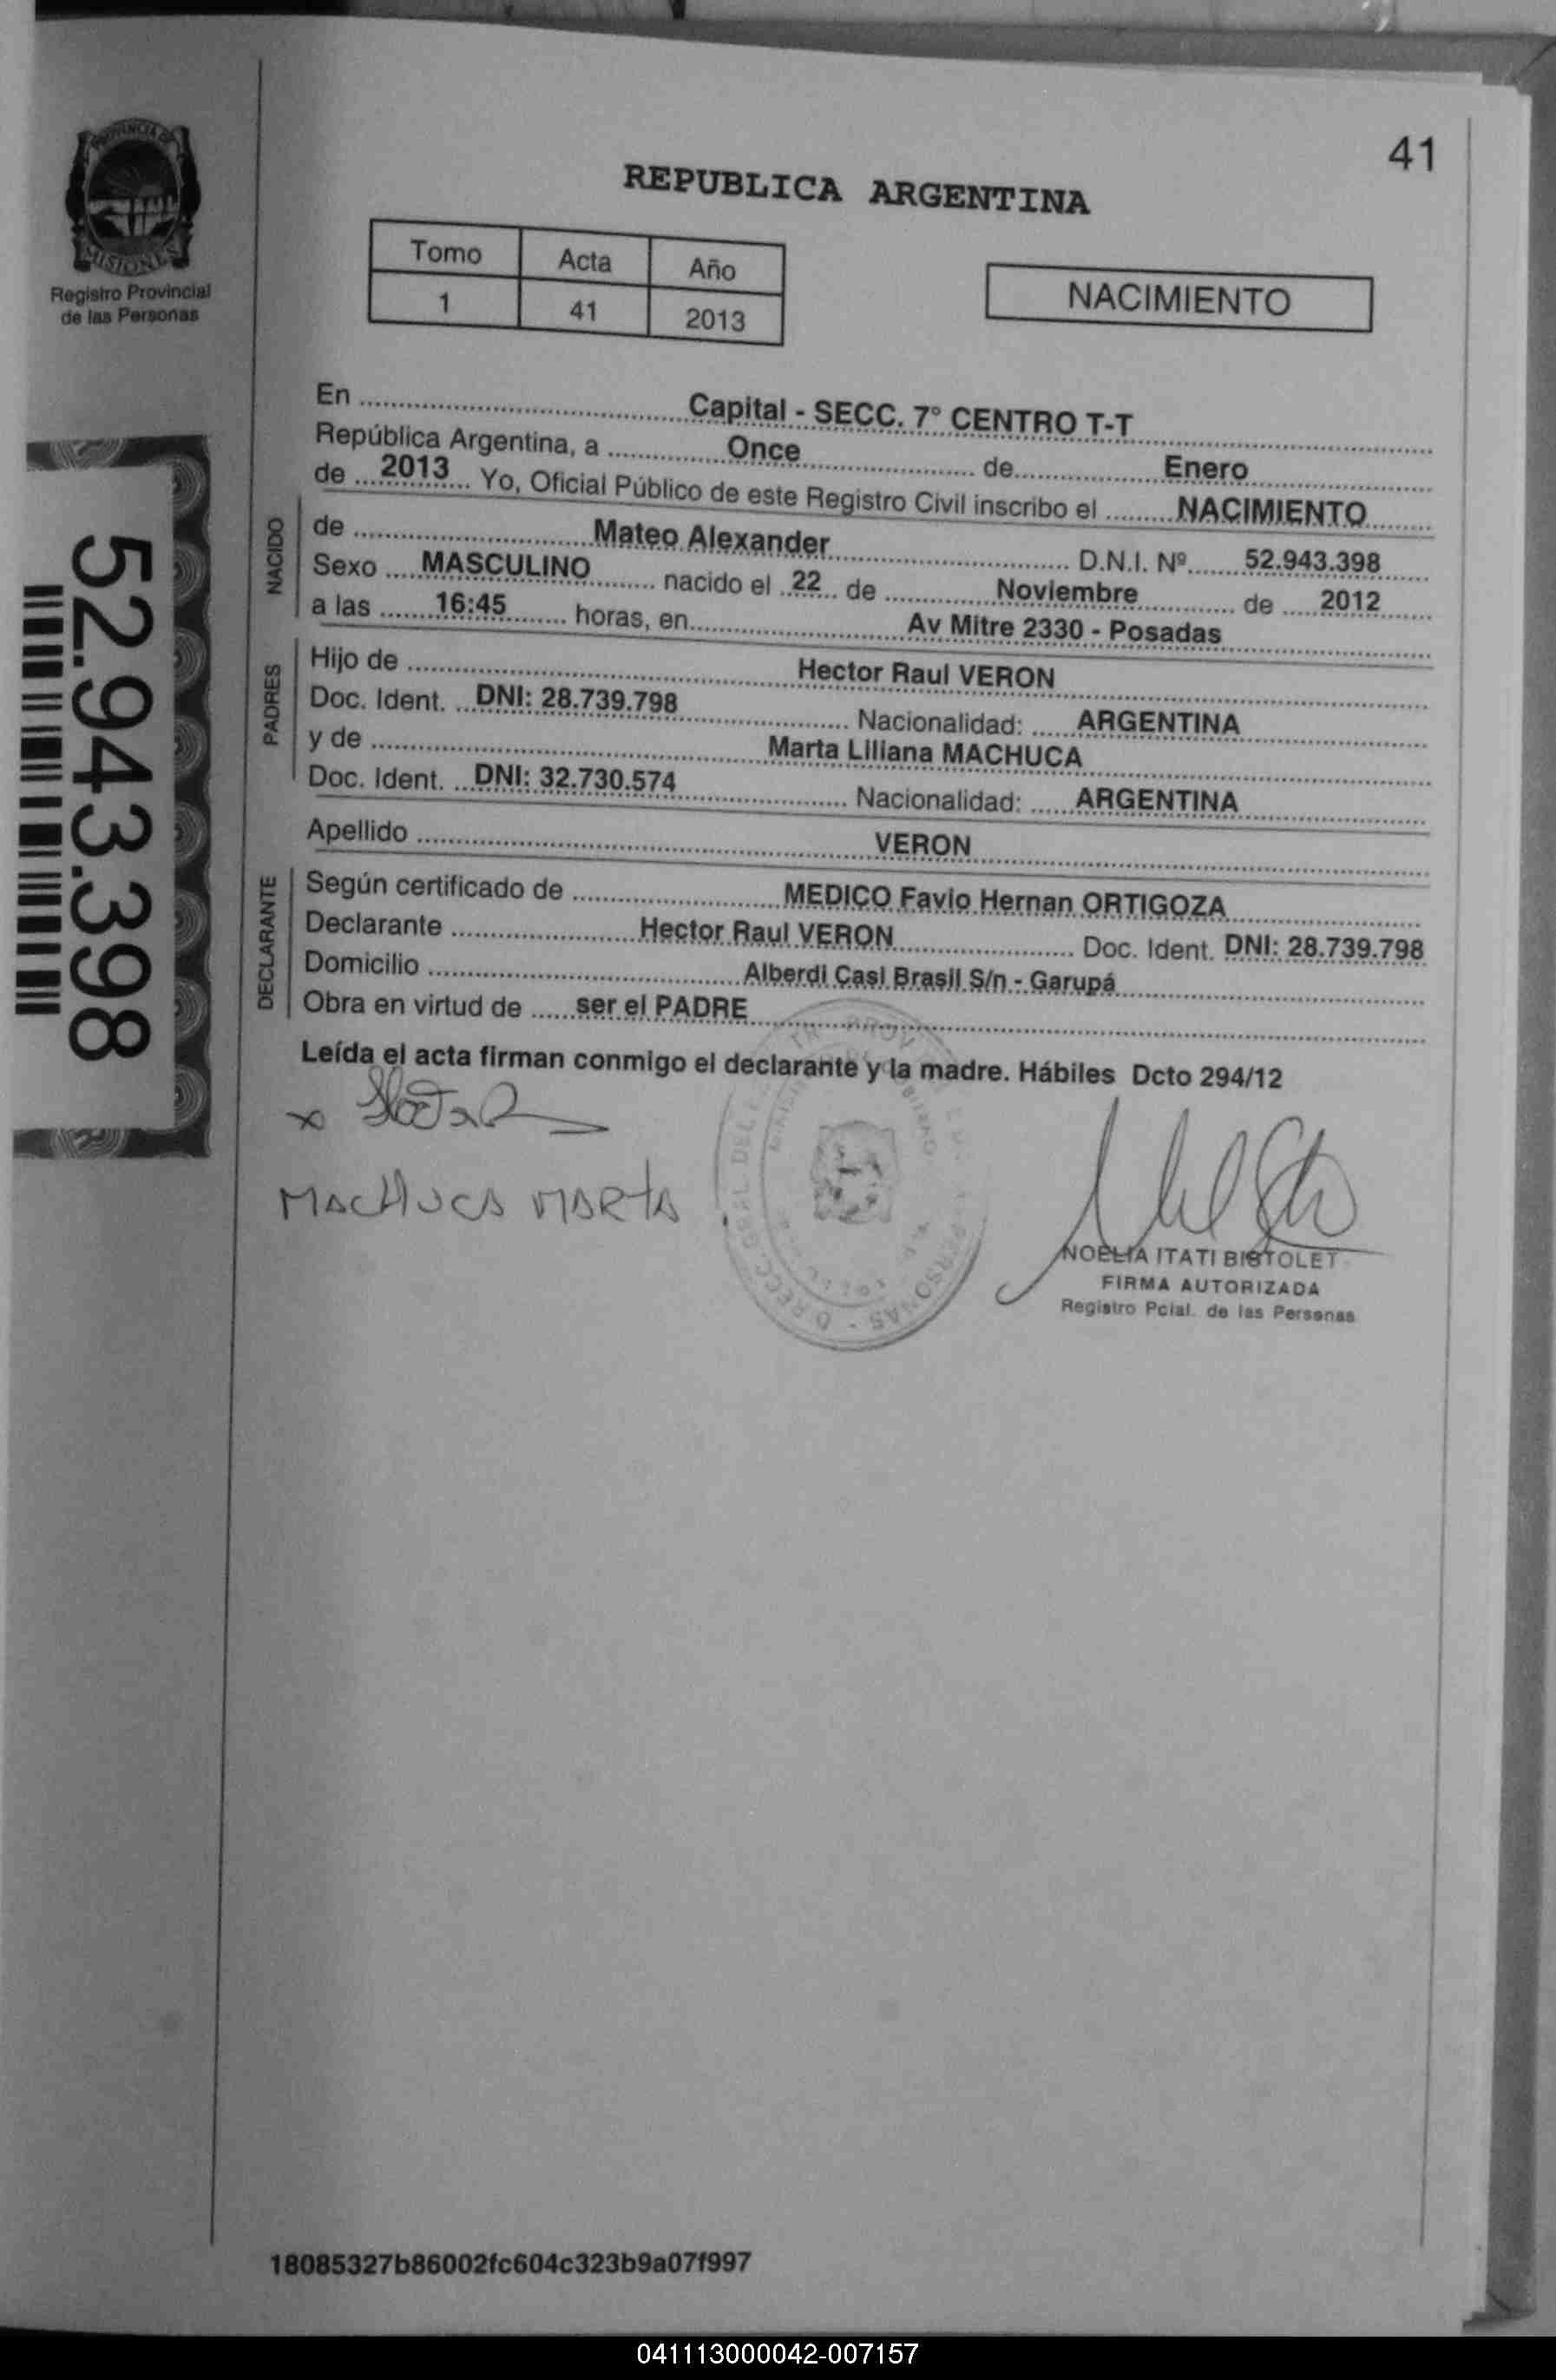 41
REPUBLICA ARGENTINA
PROVINCIA DE
MISIONES
Registro Provincial
de las Personas
Tomo Acta Año
1 41 2013
NACIMIENTO
En Capital - SECC. 7° CENTRO T-T
República Argentina, a Once de Enero
de 2013 Yo, Oficial Público de este Registro Civil inscribo el NACIMIENTO
NACIDO
de Mateo Alexander D.N.I. Nº 52.943.398
Sexo MASCULINO nacido el 22 de Noviembre de 2012
a las 16:45 horas, en Av Mitre 2330 - Posadas
PADRES
Hijo de Hector Raul VERON
Doc. Ident. DNI: 28.739.798 Nacionalidad: ARGENTINA
y de Marta Liliana MACHUCA
Doc. Ident. DNI: 32.730.574 Nacionalidad: ARGENTINA
Apellido VERON
DECLARANTE
Según certificado de MEDICO Favio Hernan ORTIGOZA
Declarante Hector Raul VERON Doc. Ident. DNI: 28.739.798
Domicilio Alberdi Casi Brasil S/n - Garupá
Obra en virtud de ser el PADRE
Leída el acta firman conmigo el declarante y la madre. Hábiles Dcto 294/12
52.943.398
x
MACHUCA MARTA
NOELIA ITATI BISTOLET
FIRMA AUTORIZADA
Registro Pcial. de las Personas
18085327b86002fc604c323b9a07f997
041113000042-007157